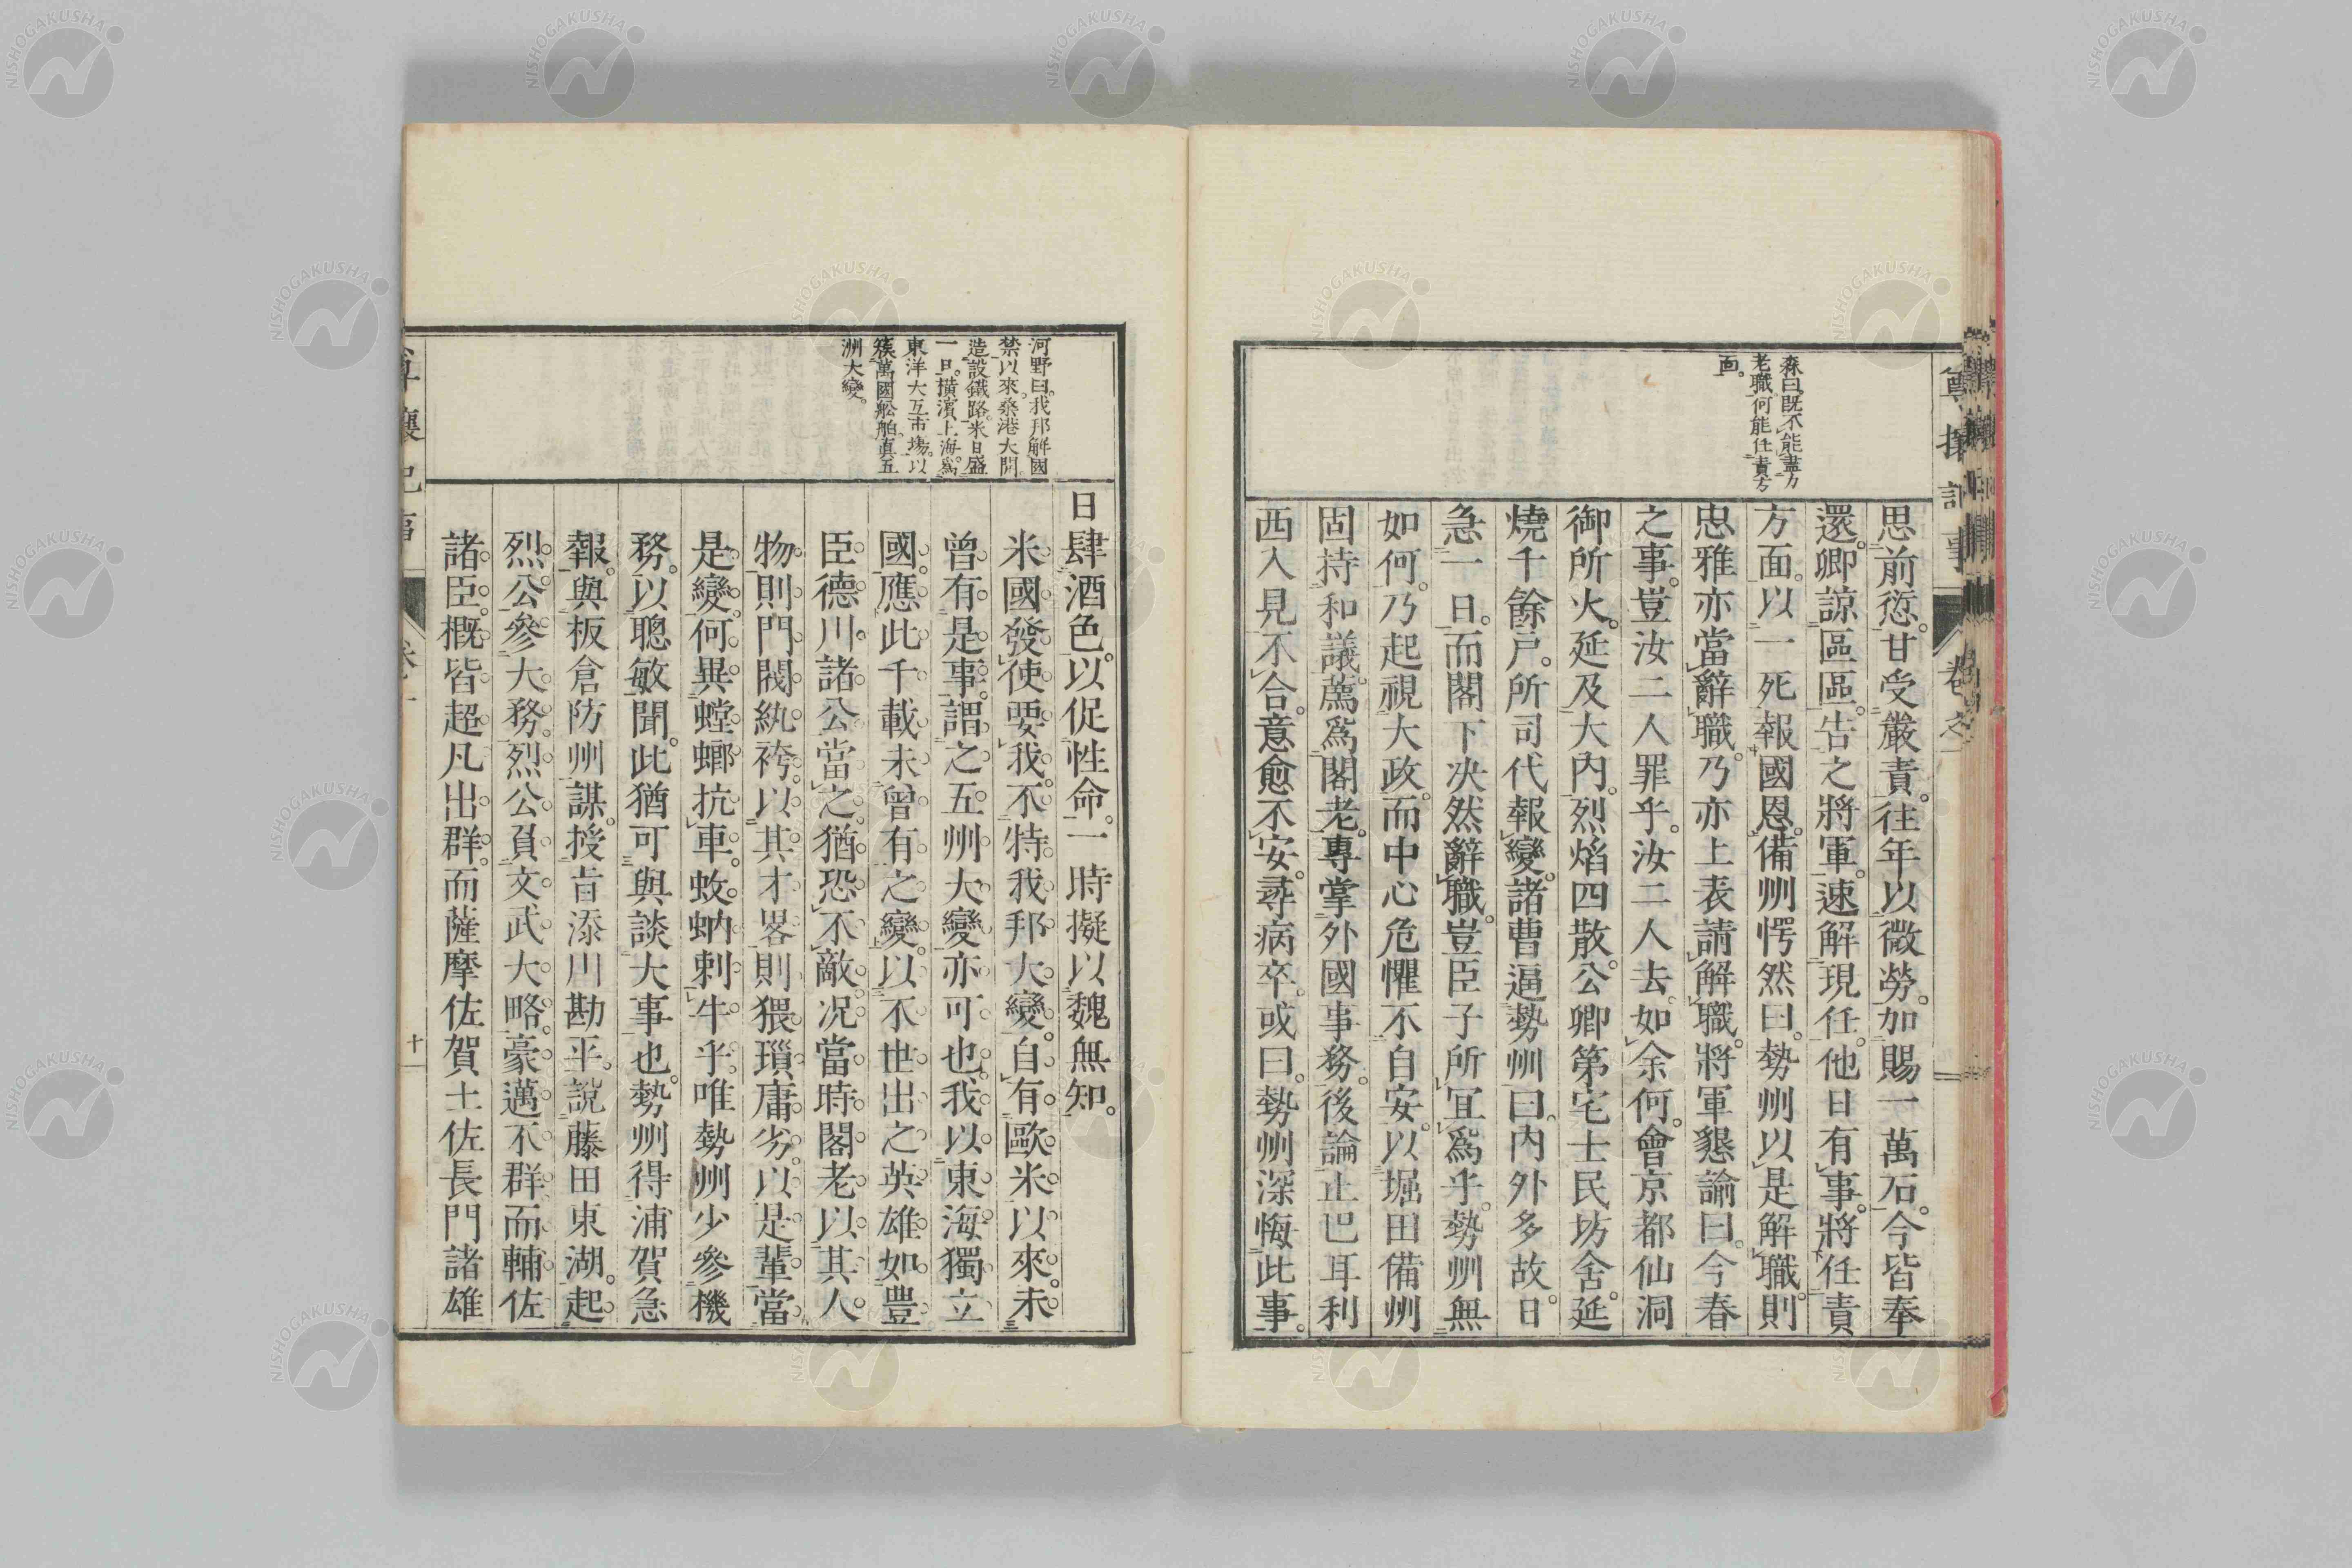 森曰。既不能盡力
老職。何能任責方
面。
思前愆。甘受嚴責。往年以微勞。加賜一萬石。今皆奉
還。卿諒區區。告之將軍。速解現任。他日有事。將任責
方面。以一死報國恩。備州愕然曰。勢州以是解職。則
忠雅亦當辭職。乃亦上表請解職。將軍懇諭曰。今春
之事。豈汝二人罪乎。汝二人去。如余何。會京都仙洞
御所火。延及大內。烈焰四散。公卿第宅士民坊舍。延
燒千餘戶。所司代報變。諸曹逼勢州曰。內外多故。日
急一日。而閣下决然辭職。豈臣子所宜爲乎。勢州無
如何。乃起視大政。而中心危懼不自安。以堀田備州
固持和議。薦爲閣老。專掌外國事務。後論止巴耳利
西入見。不合意愈不安。尋病卒。或曰。勢州深悔此事。
河野曰。我邦解國
禁以來。桑港大開
造設鐵路。米日盛
一旦。橫濱上海。爲
東洋大互市場。以
簇萬國舩舶。眞五
洲大變。
日肆酒色。以促性命。一時擬以魏無知。
米國發使要我。不特我邦大變。自有歐米以來。未
曾有是事。謂之五州大變亦可也。我以東海獨立
國。應此千載未曾有之變。以不世出之英雄如豐
臣德川諸公當之。猶恐不敵。况當時閣老。以其人
物則門閥紈袴。以其才畧則猥瑣庸劣。以是輩當
是變。何異螳螂抗車。蚊蚋刺牛乎。唯勢州少參機
務。以聰敏聞。此猶可與談大事也。勢州得浦賀急
報。與板倉防州謀。授旨添川勘平。說藤田東湖。起
烈公參大務。烈公負文武大略。豪邁不群。而輔佐
諸臣。概皆超凡出群。而薩摩佐賀土佐長門諸雄
十
NISHOGAKUSHA